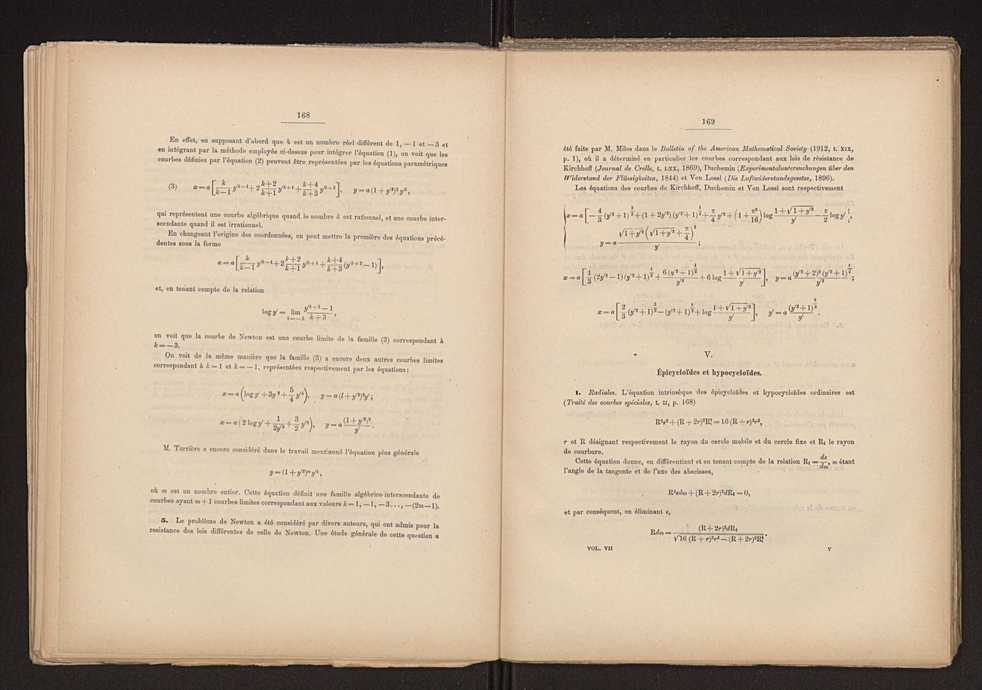 168
En effet, en supposant d'abord que k est un nombre réel différent de 1, — 1 et — 3 et
en intégrant par la méthode employée ci-dessus pour intégrer l'équation (1), on voit que les
courbes définies par l'équation (2) peuvent être représentées par les équations paramétriques
(3) x = a [ k/(k—1) y'^(k—1) + 2 (k+2)/(k+1) y'^(k+1) + (k+4)/(k+3) y'^(k+3) ], y = a (1 + y'²)² y'^k,
qui représentent une courbe algébrique quand le nombre k est rationnel, et une courbe inter-
scendante quand il est irrationnel.
En changeant l'origine des coordonnées, on peut mettre la première des équations précé-
dentes sous la forme
x = a [ k/(k—1) y'^(k—1) + 2 (k+2)/(k+1) y'^(k+1) + (k+4)/(k+3) (y'^(k+3) — 1) ],
et, en tenant compte de la relation
log y' = lim (k=—3) (y'^(k+3) — 1)/(k+3),
on voit que la courbe de Newton est une courbe limite de la famille (3) correspondant à
k = — 3.
On voit de la même manière que la famille (3) a encore deux autres courbes limites
correspondant à k = 1 et k = — 1, représentées respectivement par les équations:
x = a ( log y' + 3y'² + 5/4 y'⁴ ), y = a (1 + y'²)² y';
x = a ( 2 log y' + 1/(2y'²) + 3/2 y'² ), y = a (1 + y'²)²/y'.
M. Turrière a encore considéré dans le travail mentionné l'équation plus générale
y = (1 + y'²)^m y'^k,
où m est un nombre entier. Cette équation définit une famille algébrico-interscendante de
courbes ayant m + 1 courbes limites correspondant aux valeurs k = 1, — 1, — 3..., — (2m — 1).
5. Le problème de Newton a été considéré par divers auteurs, qui ont admis pour la
resistance des lois différentes de celle de Newton. Une étude générale de cette question a
169
été faite par M. Miles dans le Bulletin of the American Mathematical Society (1912, t. XIX,
p. 1), où il a déterminé en particulier les courbes correspondant aux lois de résistance de
Kirchhoff (Journal de Crelle, t. LXX, 1869), Duchemin (Experimentaluntersuchungen über den
Widerstand der Flüssigkeiten, 1844) et Von Lossl (Die Luftwiderstandsgesetze, 1896).
Les équations des courbes de Kirchhoff, Duchemin et Von Lossl sont respectivement
V.
Épicycloïdes et hypocycloïdes.
1. Radiales. L'équation intrinsèque des épicycloïdes et hypocycloïdes ordinaires est
(Traité des courbes spéciales, t. II, p. 168)
R²s² + (R + 2r)² R₁² = 16 (R + r)² r²,
r et R désignant respectivement le rayon du cercle mobile et du cercle fixe et R₁ le rayon
de courbure.
Cette équation donne, en différentiant et en tenant compte de la relation R₁ = ds/dω, ω étant
l'angle de la tangente et de l'axe des abscisses,
R²sdω + (R + 2r)² dR₁ = 0,
et par conséquent, en éliminant s,
Rdω = (R + 2r)² dR₁ / √(16 (R + r)² r² — (R + 2r)² R₁²).
VOL. VII V